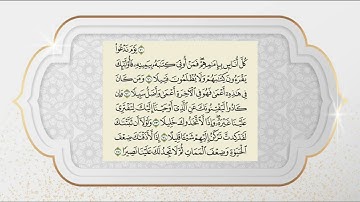 ۝ يَوْمَ نَدْعُوا۟
كُلَّ أُنَاسٍۭ بِإِمَـٰمِهِمْ فَمَنْ أُوتِىَ كِتَـٰبَهُۥ بِيَمِينِهِۦ فَأُو۟لَـٰٓئِكَ
يَقْرَءُونَ كِتَـٰبَهُمْ وَلَا يُظْلَمُونَ فَتِيلًا ۝ وَمَن كَانَ
فِى هَـٰذِهِۦٓ أَعْمَىٰ فَهُوَ فِى ٱلْـَٔاخِرَةِ أَعْمَىٰ وَأَضَلُّ سَبِيلًا ۝ وَإِن
كَادُوا۟ لَيَفْتِنُونَكَ عَنِ ٱلَّذِىٓ أَوْحَيْنَآ إِلَيْكَ لِتَفْتَرِىَ
عَلَيْنَا غَيْرَهُۥ وَإِذًا لَّٱتَّخَذُوكَ خَلِيلًا ۝ وَلَوْلَآ أَن ثَبَّتْنَـٰكَ
لَقَدْ كِدتَّ تَرْكَنُ إِلَيْهِمْ شَيْـًٔا قَلِيلًا ۝ إِذًا لَّأَذَقْنَـٰكَ ضِعْفَ
ٱلْحَيَوٰةِ وَضِعْفَ ٱلْمَمَاتِ ثُمَّ لَا تَجِدُ لَكَ عَلَيْنَا نَصِيرًا ۝